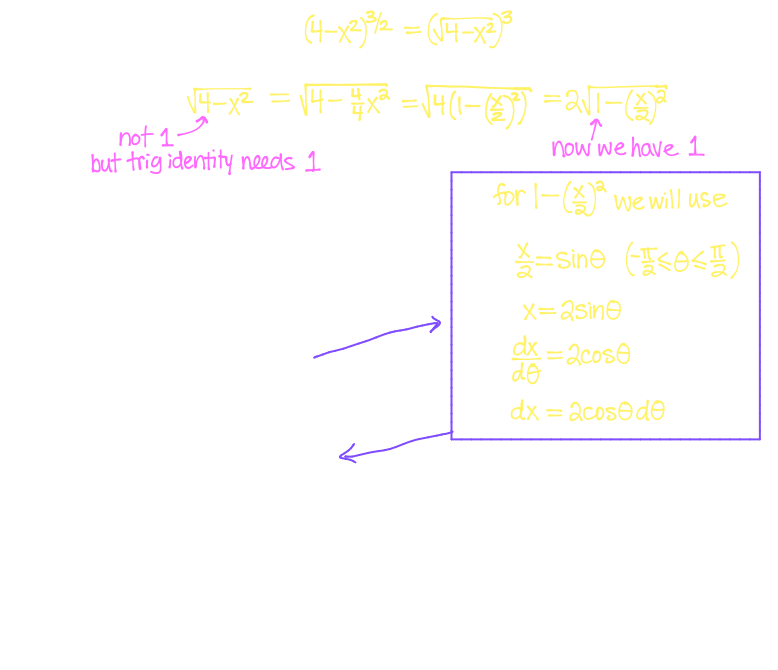 (4-x²)^3/2 = (√4-x²)³
√4-x² = √4-4/4x² = √4(1-(x/2)²) = 2√1-(x/2)²
not 1
but trig identity needs 1
now we have 1
for 1-(x/2)² we will use
x/2 = sinθ (-π/2 ≤ θ ≤ π/2)
x = 2sinθ
dx/dθ = 2cosθ
dx = 2cosθdθ